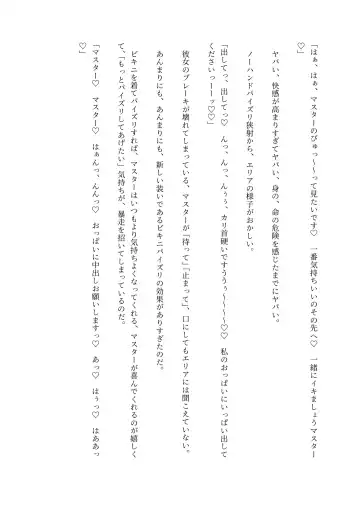 「はぁ、はぁ、マスターのびゅっ～～って見たいです♡　一番気持ちいいのその先へ♡　一緒にイキましょうマスター
♡」
ヤバい、快感が高まりすぎてヤバい、身の、命の危険を感じたまでにヤバい。
ノーハンドパイズリ狭射から、エリアの様子がおかしい。
「出してっ、出してっ♡　んっ、んっ、んぅぅ、カリ首硬いですううぅ～～～～♡♡　私のおっぱいにいっぱい出して
くださいっーーッ♡♡」
彼女のブレーキが壊れてしまっている、マスターが「待って」「止まって」、口にしてもエリアには聞こえていない。
あんまりにも、あんまりにも、新しい装いであるビキニパイズリの効果がありすぎたのだ。
ビキニを着てパイズリすれば、マスターはいつもより気持ちよくなってくれる、マスターが喜んでくれるのが嬉しく
て、「もっとパイズリしてあげたい」気持ちが、暴走を招いてしまっているのだ。
「マスター♡　マスター♡　はぁんっ、んんっ♡　おっぱいに中出しお願いしますっ♡　あっ♡　はぅっ♡　はああっ
♡」